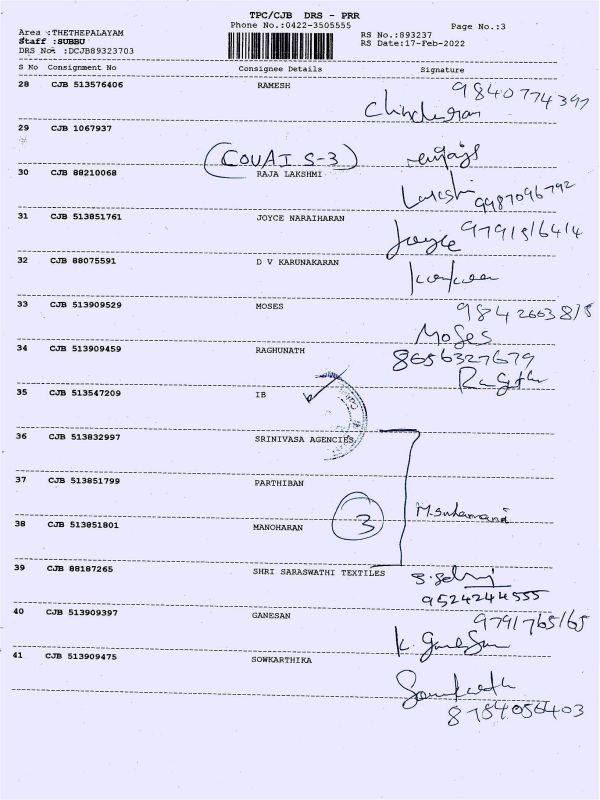 TPC/CJB DRS - PRR
Phone No.:0422-3505555
Page No.:3
Area :THETHEPALAYAM
RS No.:893237
Staff :SUBBU
RS Date:17-Feb-2022
DRS No. :DCJB89323703
S No Consignment No Consignee Details Signature
28 CJB 513576406 RAMESH
9840774397
29 CJB 1067937
(COVAI S-3)
30 CJB 88210068 RAJA LAKSHMI
9987096792
31 CJB 513851761 JOYCE NARAIHARAN
Joyce 9791516414
32 CJB 88075591 D V KARUNAKARAN
33 CJB 513909529 MOSES
Moses
34 CJB 513909459 RAGHUNATH
8656327679
35 CJB 513547209 IB
36 CJB 513832997 SRINIVASA AGENCIES
37 CJB 513851799 PARTHIBAN
3
38 CJB 513851801 MANOHARAN
39 CJB 88187265 SHRI SARASWATHI TEXTILES
9524244555
40 CJB 513909397 GANESAN
9791765165
K. Ganesan
41 CJB 513909475 SOWKARTHIKA
8754056403